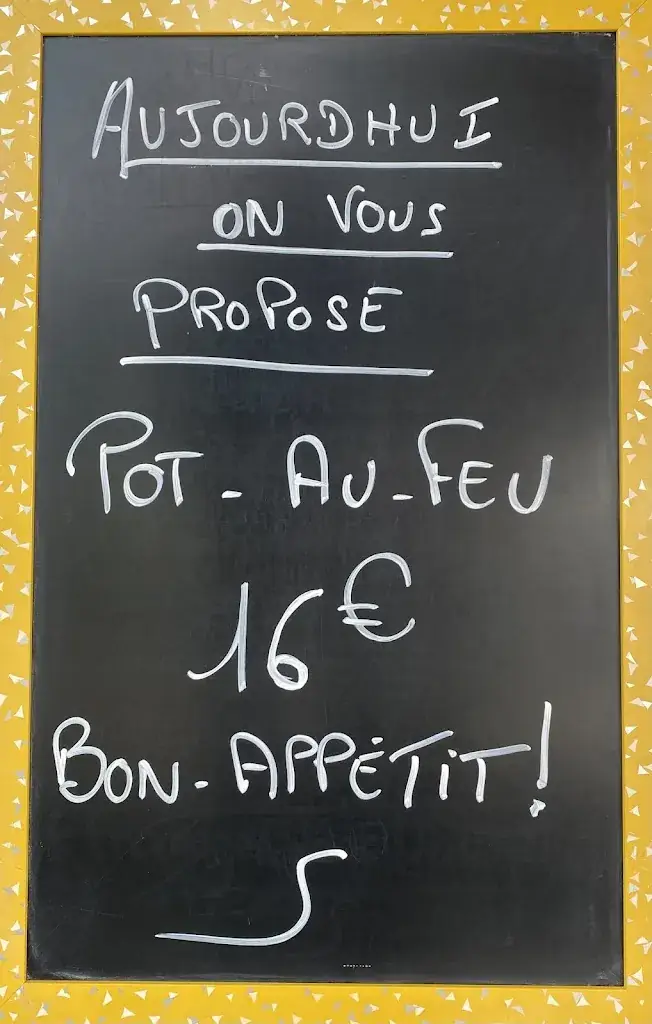 AUJOURDHUI
ON VOUS
PROPOSE
POT-AU-FEU
16€
BON-APPÉTIT!